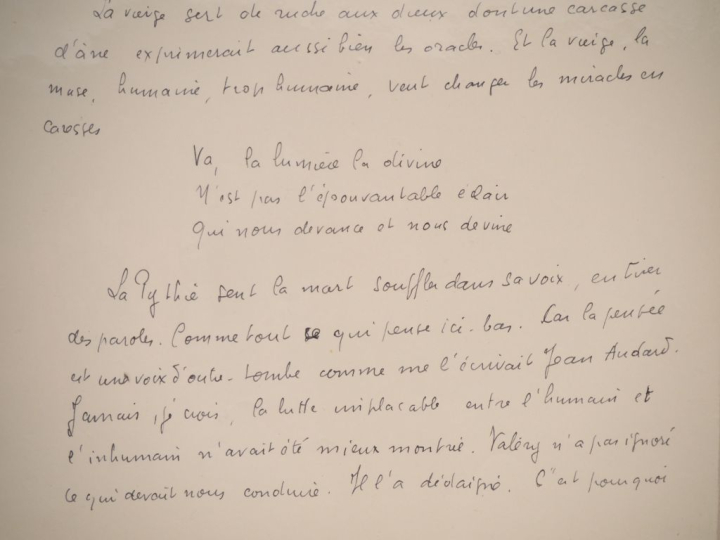 La vierge sert de ruche aux dieux dont une carcasse
d'âne exprimerait aussi bien les oracles. Et la vierge, la
muse, humaine, trop humaine, veut changer les miracles en
caresses
Va, la lumière la divine
N'est pas l'épouvantable éclair
Qui nous devance et nous devine
La Pythie sent la mort souffler dans sa voix, en tirer
des paroles. Comme tout ce qui pense ici-bas. Car la pensée
est une voix d'outre-tombe comme me l'écrivait Jean Audard.
Jamais, je crois, la lutte implacable entre l'humain et
l'inhumain n'avait été mieux montrée. Valéry n'a pas ignoré
ce qui devait nous conduire. Il l'a dédaigné. C'est pourquoi